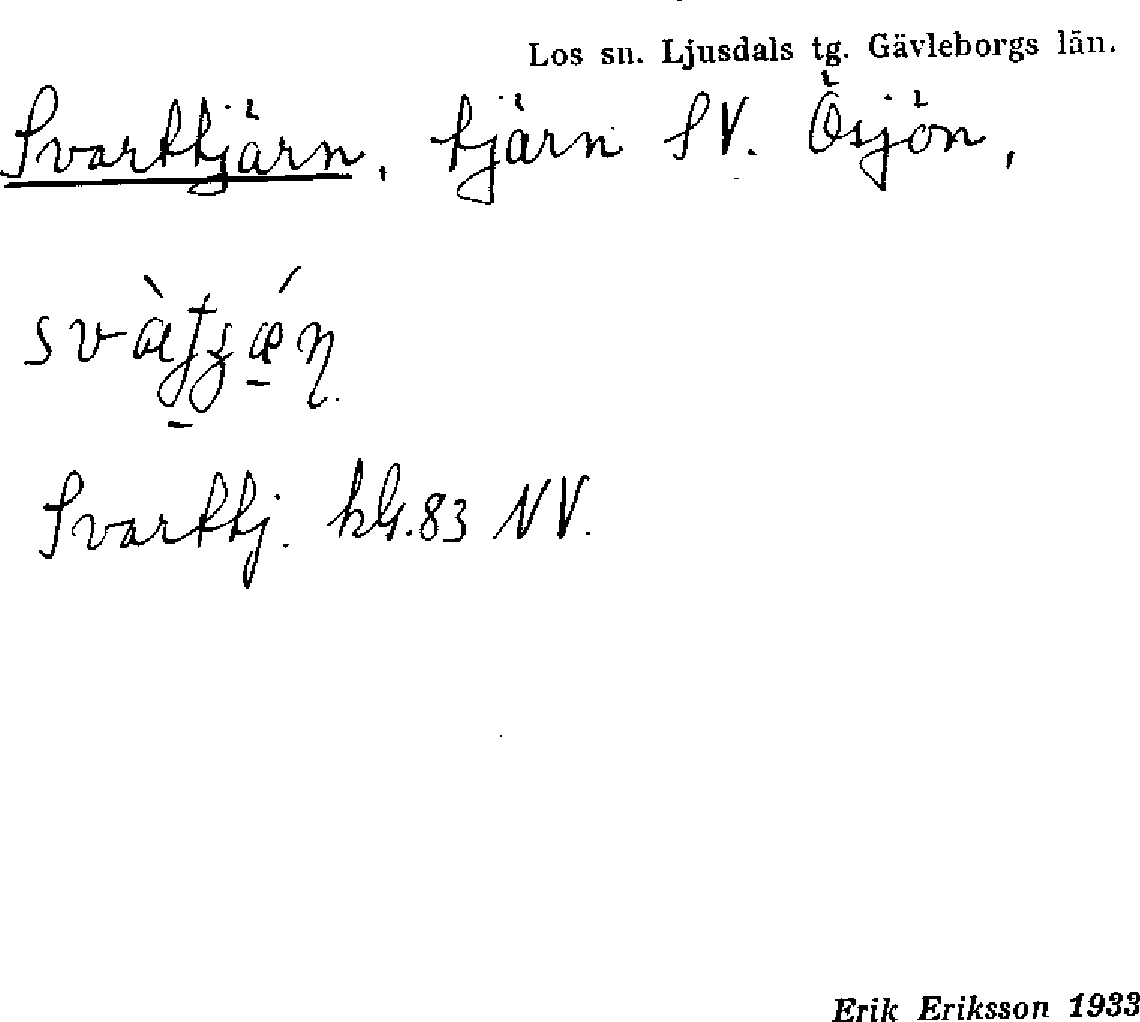 Los sn. Ljusdals tg. Gävleborgs län.
Svarttjärn, tjärn SV. Ösjön,
Svarttj. kbl. 83 NV.
Erik Eriksson 1933